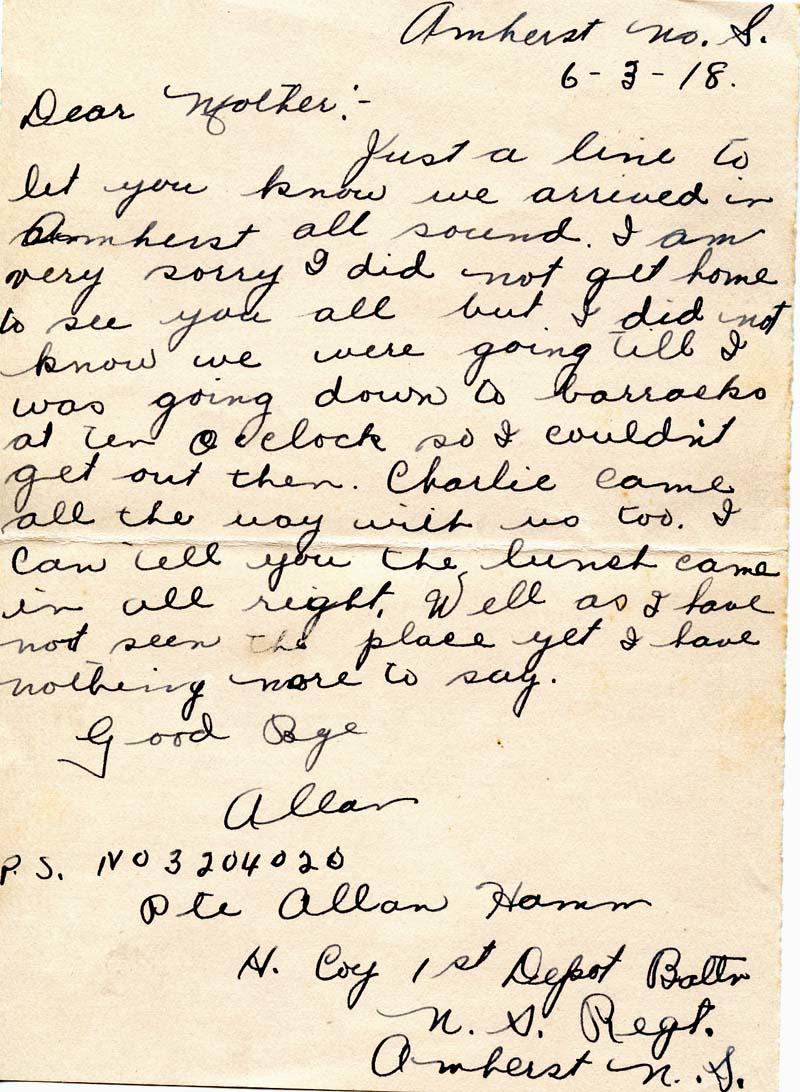 Amherst No. S.
6-3-18.
Dear Mother:-
Just a line to
let you know we arrived in
Amherst all sound. I am
very sorry I did not get home
to see you all but I did not
know we were going till I
was going down to barracks
at ten O'clock so I couldn't
get out then. Charlie came
all the way with us too. I
can tell you the lunch came
in all right. Well as I have
not seen the place yet I have
nothing more to say.
Good Bye
Allan
P.S. No 3204020
Pte Allan Hamm
H. Coy 1st Depot Battn
N. S. Regt.
Amherst N. S.